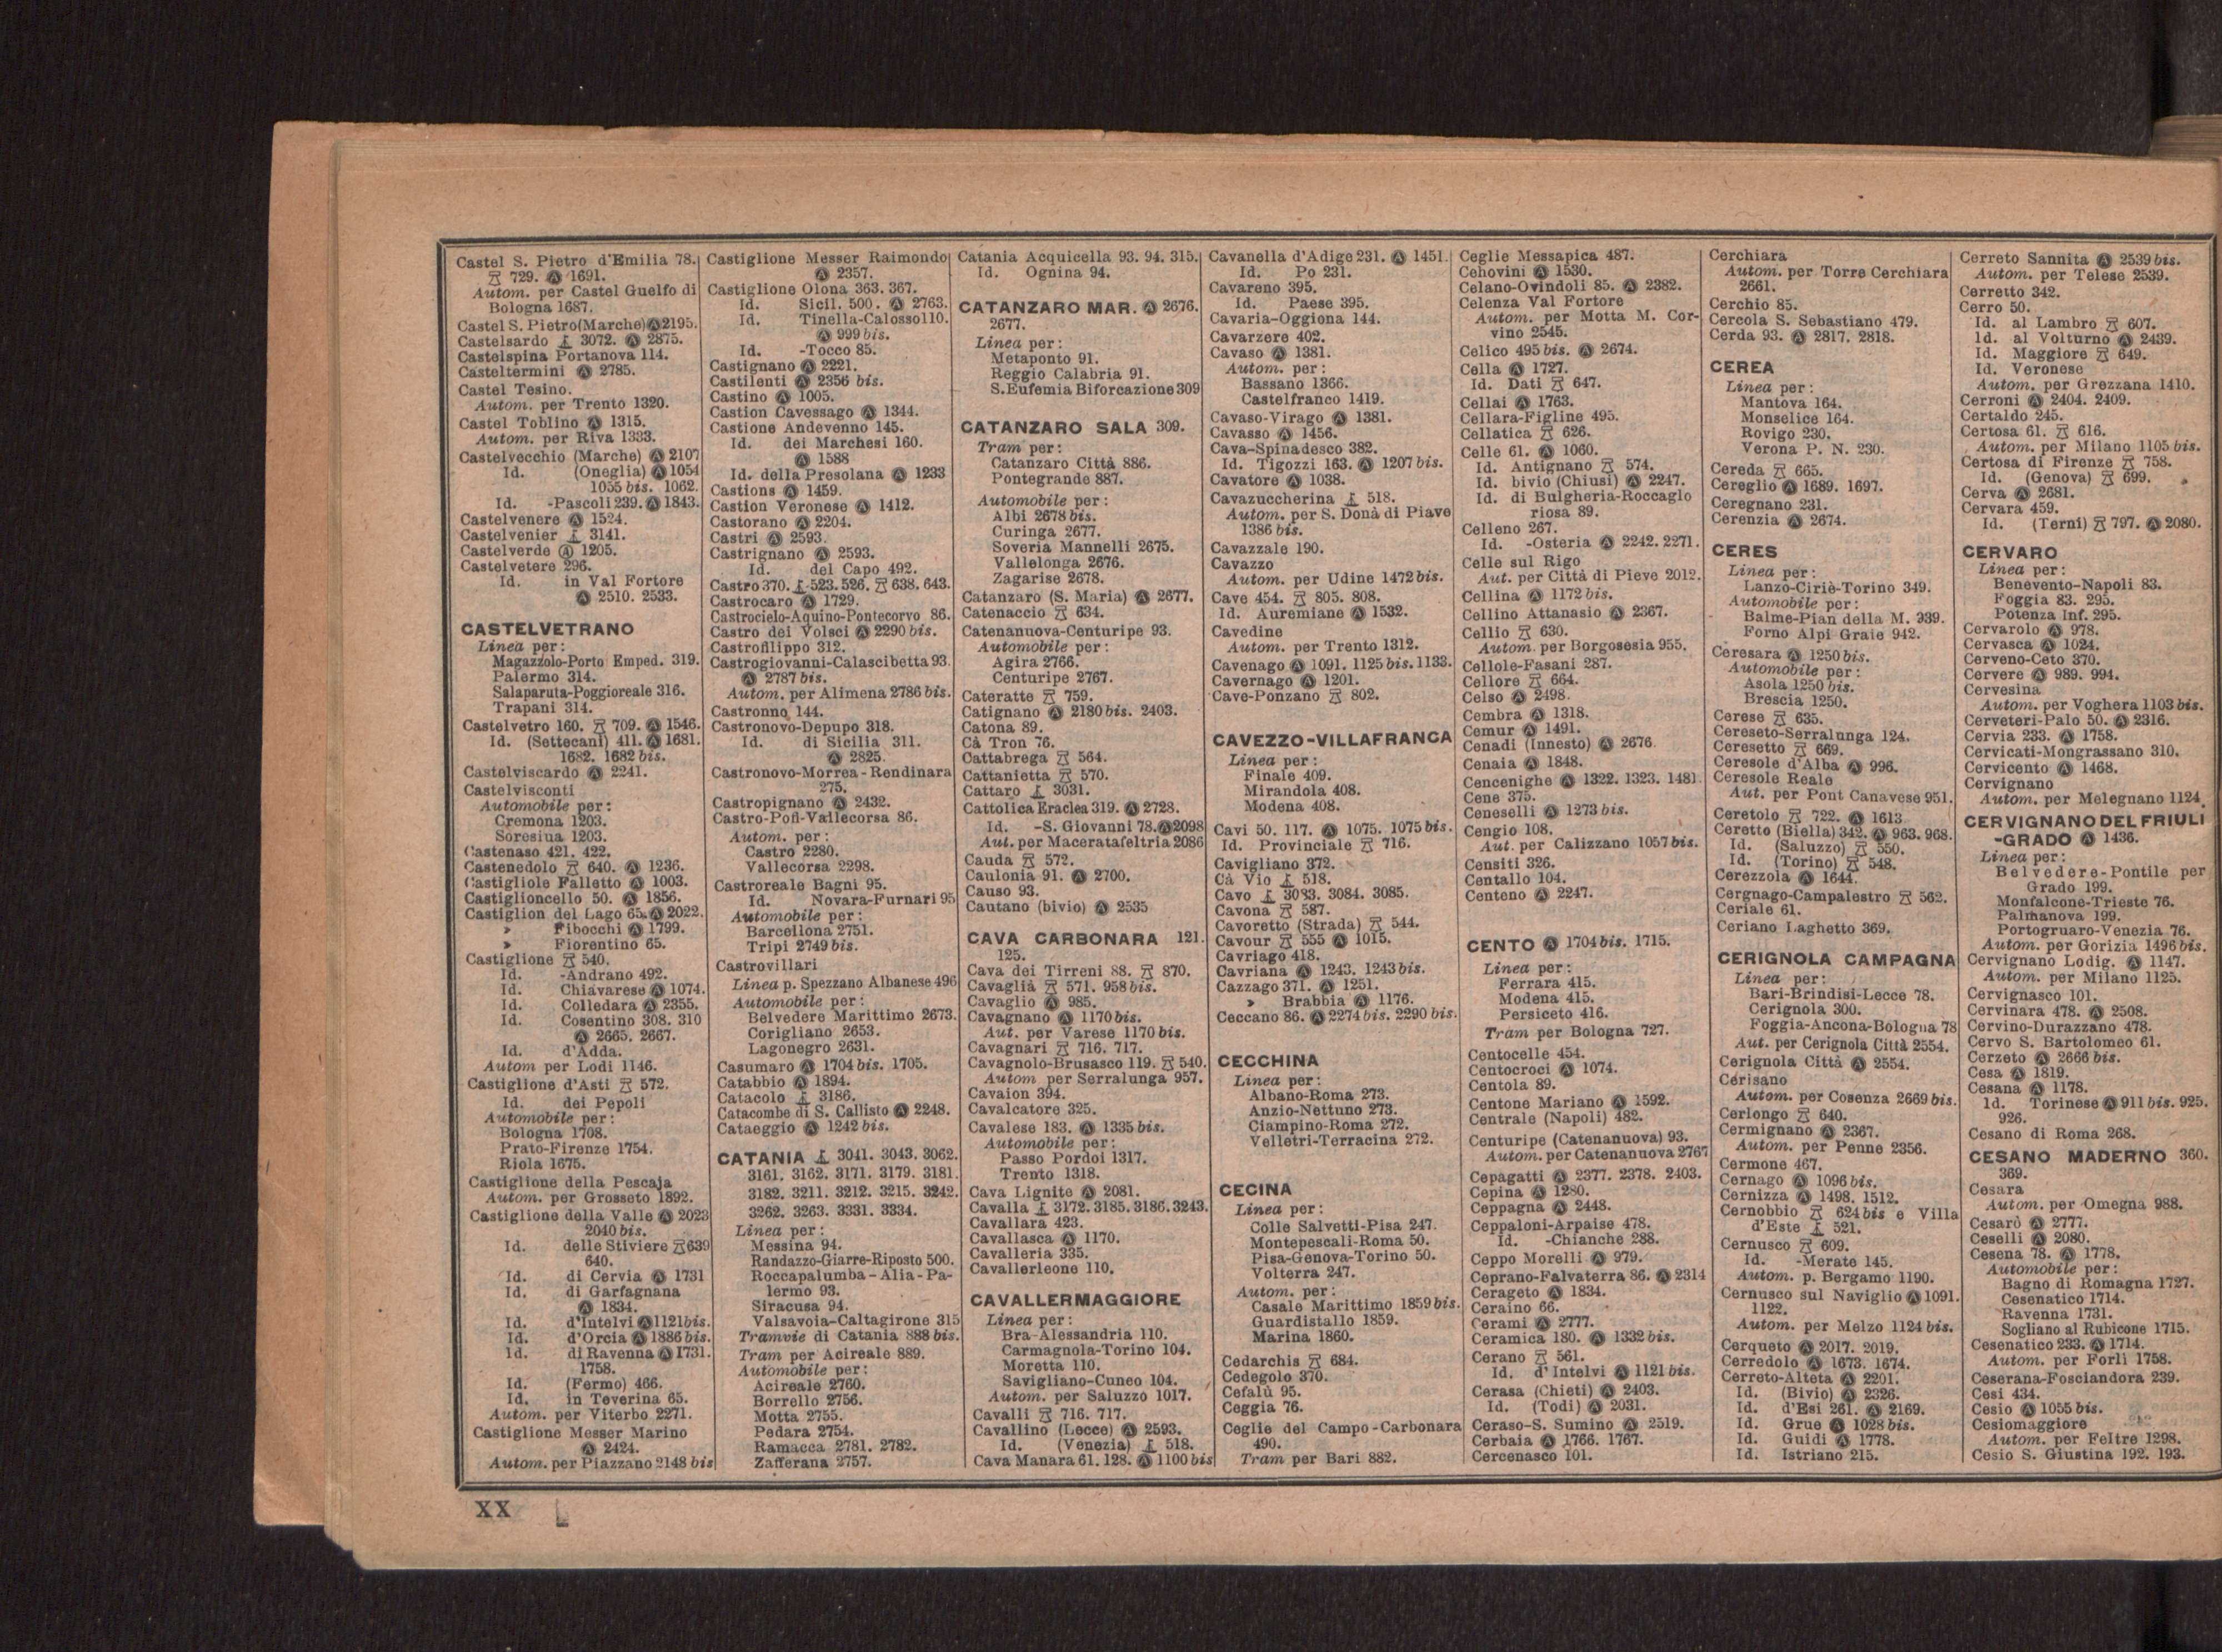 Castel S. Pietro d'Emilia 78.
729. Ⓐ 1691.
Autom. per Castel Guelfo di
Bologna 1687.
Castel S. Pietro (Marche) Ⓐ 2195.
Castelsardo 3072. Ⓐ 2875.
Castelspina Portanova 114.
Casteltermini Ⓐ 2785.
Castel Tesino.
Autom. per Trento 1320.
Castel Toblino Ⓐ 1315.
Autom. per Riva 1333.
Castelvecchio (Marche) Ⓐ 2107
Id. (Oneglia) Ⓐ 1054
1055 bis. 1062.
Id. -Pascoli 239. Ⓐ 1843.
Castelvenere Ⓐ 1524.
Castelvenier 3141.
Castelverde Ⓐ 1205.
Castelvetere 296.
Id. in Val Fortore
Ⓐ 2510. 2533.
CASTELVETRANO
Linea per:
Magazzolo-Porto Emped. 319.
Palermo 314.
Salaparuta-Poggioreale 316.
Trapani 314.
Castelvetro 160. 709. Ⓐ 1546.
Id. (Settecani) 411. Ⓐ 1681.
1682. 1682 bis.
Castelviscardo Ⓐ 2241.
Castelvisconti
Automobile per:
Cremona 1203.
Soresina 1203.
Castenaso 421. 422.
Castenedolo 640. Ⓐ 1236.
Castigliole Falletto Ⓐ 1003.
Castiglioncello 50. Ⓐ 1856.
Castiglion del Lago 65. Ⓐ 2022.
» Fibocchi Ⓐ 1799.
» Fiorentino 65.
Castiglione 540.
Id. -Andrano 492.
Id. Chiavarese Ⓐ 1074.
Id. Colledara Ⓐ 2355.
Id. Cosentino 308. 310
Ⓐ 2665. 2667.
Id. d'Adda.
Autom per Lodi 1146.
Castiglione d'Asti 572.
Id. dei Pepoli
Automobile per:
Bologna 1708.
Prato-Firenze 1754.
Riola 1675.
Castiglione della Pescaja
Autom. per Grosseto 1892.
Castiglione della Valle Ⓐ 2023
2040 bis.
Id. delle Stiviere 639
640.
Id. di Cervia Ⓐ 1731
Id. di Garfagnana
Ⓐ 1834.
Id. d'Intelvi Ⓐ 1121 bis.
Id. d'Orcia Ⓐ 1886 bis.
Id. di Ravenna Ⓐ 1731.
1758.
Id. (Fermo) 466.
Id. in Teverina 65.
Autom. per Viterbo 2271.
Castiglione Messer Marino
Ⓐ 2424.
Autom. per Piazzano 2148 bis
Castiglione Messer Raimondo
Ⓐ 2357.
Castiglione Olona 363. 367.
Id. Sicil. 500. Ⓐ 2763.
Id. Tinella-Calosso 110.
Ⓐ 999 bis.
Id. -Tocco 85.
Castignano Ⓐ 2221.
Castilenti Ⓐ 2356 bis.
Castino Ⓐ 1005.
Castion Cavessago Ⓐ 1344.
Castione Andevenno 145.
Id. dei Marchesi 160.
Ⓐ 1588
Id. della Presolana Ⓐ 1233
Castions Ⓐ 1459.
Castion Veronese Ⓐ 1412.
Castorano Ⓐ 2204.
Castri Ⓐ 2593.
Castrignano Ⓐ 2593.
Id. del Capo 492.
Castro 370. 523. 526. 638. 643.
Castrocaro Ⓐ 1729.
Castrocielo-Aquino-Pontecorvo 86.
Castro dei Volsci Ⓐ 2290 bis.
Castrofilippo 312.
Castrogiovanni-Calascibetta 93.
Ⓐ 2787 bis.
Autom. per Alimena 2786 bis.
Castronno 144.
Castronovo-Depupo 318.
Id. di Sicilia 311.
Ⓐ 2825.
Castronovo-Morrea-Rendinara
275.
Castropignano Ⓐ 2432.
Castro-Pofi-Vallecorsa 86.
Autom. per:
Castro 2280.
Vallecorsa 2298.
Castroreale Bagni 95.
Id. Novara-Furnari 95
Automobile per:
Barcellona 2751.
Tripi 2749 bis.
Castrovillari
Linea p. Spezzano Albanese 496
Automobile per:
Belvedere Marittimo 2673.
Corigliano 2653.
Lagonegro 2631.
Casumaro Ⓐ 1704 bis. 1705.
Catabbio Ⓐ 1894.
Catacolo 3186.
Catacombe di S. Callisto Ⓐ 2248.
Cataeggio Ⓐ 1242 bis.
CATANIA 3041. 3043. 3062.
3161. 3162. 3171. 3179. 3181.
3182. 3211. 3212. 3215. 3242.
3262. 3263. 3331. 3334.
Linea per:
Messina 94.
Randazzo-Giarre-Riposto 500.
Roccapalumba-Alia-Pa-
lermo 93.
Siracusa 94.
Valsavoia-Caltagirone 315
Tramvie di Catania 888 bis.
Tram per Acireale 889.
Automobile per:
Acireale 2760.
Borrello 2756.
Motta 2755.
Pedara 2754.
Ramacca 2781. 2782.
Zafferana 2757.
Catania Acquicella 93. 94. 315.
Id. Ognina 94.
CATANZARO MAR. Ⓐ 2676.
2677.
Linea per:
Metaponto 91.
Reggio Calabria 91.
S. Eufemia Biforcazione 309
CATANZARO SALA 309.
Tram per:
Catanzaro Città 886.
Pontegrande 887.
Automobile per:
Albi 2678 bis.
Curinga 2677.
Soveria Mannelli 2675.
Vallelonga 2676.
Zagarise 2678.
Catanzaro (S. Maria) Ⓐ 2677.
Catenaccio 634.
Catenanuova-Centuripe 93.
Automobile per:
Agira 2766.
Centuripe 2767.
Cateratte 759.
Catignano Ⓐ 2180 bis. 2403.
Catona 89.
Cà Tron 76.
Cattabrega 564.
Cattanietta 570.
Cattaro 3031.
Cattolica Eraclea 319. Ⓐ 2728.
Id. -S. Giovanni 78. Ⓐ 2098
Aut. per Maceratafeltria 2086
Cauda 572.
Caulonia 91. Ⓐ 2700.
Causo 93.
Cautano (bivio) Ⓐ 2535
CAVA CARBONARA 121.
125.
Cava dei Tirreni 88. 870.
Cavaglià 571. 958 bis.
Cavaglio Ⓐ 985.
Cavagnano Ⓐ 1170 bis.
Aut. per Varese 1170 bis.
Cavagnari 716. 717.
Cavagnolo-Brusasco 119. 540.
Autom per Serralunga 957.
Cavaion 394.
Cavalcatore 325.
Cavalese 183. Ⓐ 1335 bis.
Automobile per:
Passo Pordoi 1317.
Trento 1318.
Cava Lignite Ⓐ 2081.
Cavalla 3172. 3185. 3186. 3243.
Cavallara 423.
Cavallasca Ⓐ 1170.
Cavalleria 335.
Cavallerleone 110.
CAVALLERMAGGIORE
Linea per:
Bra-Alessandria 110.
Carmagnola-Torino 104.
Moretta 110.
Savigliano-Cuneo 104.
Autom. per Saluzzo 1017.
Cavalli 716. 717.
Cavallino (Lecce) Ⓐ 2593.
Id. (Venezia) 518.
Cava Manara 61. 128. Ⓐ 1100 bis
Cavanella d'Adige 231. Ⓐ 1451.
Id. Po 231.
Cavareno 395.
Id. Paese 395.
Cavaria-Oggiona 144.
Cavarzere 402.
Cavaso Ⓐ 1381.
Autom. per:
Bassano 1366.
Castelfranco 1419.
Cavaso-Virago Ⓐ 1381.
Cavasso Ⓐ 1456.
Cava-Spinadesco 382.
Id. Tigozzi 163. Ⓐ 1207 bis.
Cavatore Ⓐ 1038.
Cavazuccherina 518.
Autom. per S. Donà di Piave
1386 bis.
Cavazzale 190.
Cavazzo
Autom. per Udine 1472 bis.
Cave 454. 805. 808.
Id. Auremiane Ⓐ 1532.
Cavedine
Autom. per Trento 1312.
Cavenago Ⓐ 1091. 1125 bis. 1133.
Cavernago Ⓐ 1201.
Cave-Ponzano 802.
CAVEZZO-VILLAFRANCA
Linea per:
Finale 409.
Mirandola 408.
Modena 408.
Cavi 50. 117. Ⓐ 1075. 1075 bis.
Id. Provinciale 716.
Cavigliano 372.
Cà Vio 518.
Cavo 3083. 3084. 3085.
Cavona 587.
Cavoretto (Strada) 544.
Cavour 555 Ⓐ 1015.
Cavriago 418.
Cavriana Ⓐ 1243. 1243 bis.
Cazzago 371. Ⓐ 1251.
» Brabbia Ⓐ 1176.
Ceccano 86. Ⓐ 2274 bis. 2290 bis.
CECCHINA
Linea per:
Albano-Roma 273.
Anzio-Nettuno 273.
Ciampino-Roma 272.
Velletri-Terracina 272.
CECINA
Linea per:
Colle Salvetti-Pisa 247.
Montepescali-Roma 50.
Pisa-Genova-Torino 50.
Volterra 247.
Autom. per:
Casale Marittimo 1859 bis.
Guardistallo 1859.
Marina 1860.
Cedarchis 684.
Cedegolo 370.
Cefalù 95.
Ceggia 76.
Ceglie del Campo-Carbonara
490.
Tram per Bari 882.
Ceglie Messapica 487.
Cehovini Ⓐ 1530.
Celano-Ovindoli 85. Ⓐ 2382.
Celenza Val Fortore
Autom. per Motta M. Cor-
vino 2545.
Celico 495 bis. Ⓐ 2674.
Cella Ⓐ 1727.
Id. Dati 647.
Cellai Ⓐ 1763.
Cellara-Figline 495.
Cellatica 626.
Celle 61. Ⓐ 1060.
Id. Antignano 574.
Id. bivio (Chiusi) Ⓐ 2247.
Id. di Bulgheria-Roccaglo
riosa 89.
Celleno 267.
Id. -Osteria Ⓐ 2242. 2271.
Celle sul Rigo
Aut. per Città di Pieve 2012.
Cellina Ⓐ 1172 bis.
Cellino Attanasio Ⓐ 2367.
Cellio 630.
Autom. per Borgosesia 955.
Cellole-Fasani 287.
Cellore 664.
Celso Ⓐ 2498.
Cembra Ⓐ 1318.
Cemur Ⓐ 1491.
Cenadi (Innesto) Ⓐ 2676.
Cenaia Ⓐ 1848.
Cencenighe Ⓐ 1322. 1323. 1481
Cene 375.
Ceneselli Ⓐ 1273 bis.
Cengio 108.
Aut. per Calizzano 1057 bis.
Censiti 326.
Centallo 104.
Centeno Ⓐ 2247.
CENTO Ⓐ 1704 bis. 1715.
Linea per:
Ferrara 415.
Modena 415.
Persiceto 416.
Tram per Bologna 727.
Centocelle 454.
Centocroci Ⓐ 1074.
Centola 89.
Centone Mariano Ⓐ 1592.
Centrale (Napoli) 482.
Centuripe (Catenanuova) 93.
Autom. per Catenanuova 2767
Cepagatti Ⓐ 2377. 2378. 2403.
Cepina Ⓐ 1280.
Ceppagna Ⓐ 2448.
Ceppaloni-Arpaise 478.
Id. -Chianche 288.
Ceppo Morelli Ⓐ 979.
Ceprano-Falvaterra 86. Ⓐ 2314
Cerageto Ⓐ 1834.
Ceraino 66.
Cerami Ⓐ 2777.
Ceramica 180. Ⓐ 1332 bis.
Cerano 561.
Id. d'Intelvi Ⓐ 1121 bis.
Cerasa (Chieti) Ⓐ 2403.
Id. (Todi) Ⓐ 2031.
Ceraso-S. Sumino Ⓐ 2519.
Cerbaia Ⓐ 1766. 1767.
Cercenasco 101.
Cerchiara
Autom. per Torre Cerchiara
2661.
Cerchio 85.
Cercola S. Sebastiano 479.
Cerda 93. Ⓐ 2817. 2818.
CEREA
Linea per:
Mantova 164.
Monselice 164.
Rovigo 230.
Verona P. N. 230.
Cereda 665.
Cereglio Ⓐ 1689. 1697.
Ceregnano 231.
Cerenzia Ⓐ 2674.
CERES
Linea per:
Lanzo-Ciriè-Torino 349.
Automobile per:
Balme-Pian della M. 939.
Forno Alpi Graie 942.
Ceresara Ⓐ 1250 bis.
Automobile per:
Asola 1250 bis.
Brescia 1250.
Cerese 635.
Cereseto-Serralunga 124.
Ceresetto 669.
Ceresole d'Alba Ⓐ 996.
Ceresole Reale
Aut. per Pont Canavese 951.
Ceretolo 722. Ⓐ 1613
Ceretto (Biella) 342. Ⓐ 963. 968.
Id. (Saluzzo) 550.
Id. (Torino) 548.
Cerezzola Ⓐ 1644.
Cergnago-Campalestro 562.
Ceriale 61.
Ceriano Laghetto 369.
CERIGNOLA CAMPAGNA
Linea per:
Bari-Brindisi-Lecce 78.
Cerignola 300.
Foggia-Ancona-Bologna 78
Aut. per Cerignola Città 2554.
Cerignola Città Ⓐ 2554.
Cerisano
Autom. per Cosenza 2669 bis.
Cerlongo 640.
Cermignano Ⓐ 2367.
Autom. per Penne 2356.
Cermone 467.
Cernago Ⓐ 1096 bis.
Cernizza Ⓐ 1498. 1512.
Cernobbio 624 bis e Villa
d'Este 521.
Cernusco 609.
Id. -Merate 145.
Autom. p. Bergamo 1190.
Cernusco sul Naviglio Ⓐ 1091.
1122.
Autom. per Melzo 1124 bis.
Cerqueto Ⓐ 2017. 2019.
Cerredolo Ⓐ 1673. 1674.
Cerreto-Alteta Ⓐ 2201.
Id. (Bivio) Ⓐ 2326.
Id. d'Esi 261. Ⓐ 2169.
Id. Grue Ⓐ 1028 bis.
Id. Guidi Ⓐ 1778.
Id. Istriano 215.
Cerreto Sannita Ⓐ 2539 bis.
Autom. per Telese 2539.
Cerretto 342.
Cerro 50.
Id. al Lambro 607.
Id. al Volturno Ⓐ 2439.
Id. Maggiore 649.
Id. Veronese
Autom. per Grezzana 1410.
Cerroni Ⓐ 2404. 2409.
Certaldo 245.
Certosa 61. 616.
Autom. per Milano 1105 bis.
Certosa di Firenze 758.
Id. (Genova) 699.
Cerva Ⓐ 2681.
Cervara 459.
Id. (Terni) 797. Ⓐ 2080.
CERVARO
Linea per:
Benevento-Napoli 83.
Foggia 83. 295.
Potenza Inf. 295.
Cervarolo Ⓐ 978.
Cervasca Ⓐ 1024.
Cerveno-Ceto 370.
Cervere Ⓐ 989. 994.
Cervesina
Autom. per Voghera 1103 bis.
Cerveteri-Palo 50. Ⓐ 2316.
Cervia 233. Ⓐ 1758.
Cervicati-Mongrassano 310.
Cervicento Ⓐ 1468.
Cervignano
Autom. per Melegnano 1124
CERVIGNANO DEL FRIULI
-GRADO Ⓐ 1436.
Linea per:
Belvedere-Pontile per
Grado 199.
Monfalcone-Trieste 76.
Palmanova 199.
Portogruaro-Venezia 76.
Autom. per Gorizia 1496 bis.
Cervignano Lodig. Ⓐ 1147.
Autom. per Milano 1125.
Cervignasco 101.
Cervinara 478. Ⓐ 2508.
Cervino-Durazzano 478.
Cervo S. Bartolomeo 61.
Cerzeto Ⓐ 2666 bis.
Cesa Ⓐ 1819.
Cesana Ⓐ 1178.
Id. Torinese Ⓐ 911 bis. 925.
926.
Cesano di Roma 268.
CESANO MADERNO 360.
369.
Cesara
Autom. per Omegna 988.
Cesarò Ⓐ 2777.
Ceselli Ⓐ 2080.
Cesena 78. Ⓐ 1778.
Automobile per:
Bagno di Romagna 1727.
Cesenatico 1714.
Ravenna 1731.
Sogliano al Rubicone 1715.
Cesenatico 233. Ⓐ 1714.
Autom. per Forlì 1758.
Ceserana-Fosciandora 239.
Cesi 434.
Cesio Ⓐ 1055 bis.
Cesiomaggiore
Autom. per Feltre 1298.
Cesio S. Giustina 192. 193.
XX